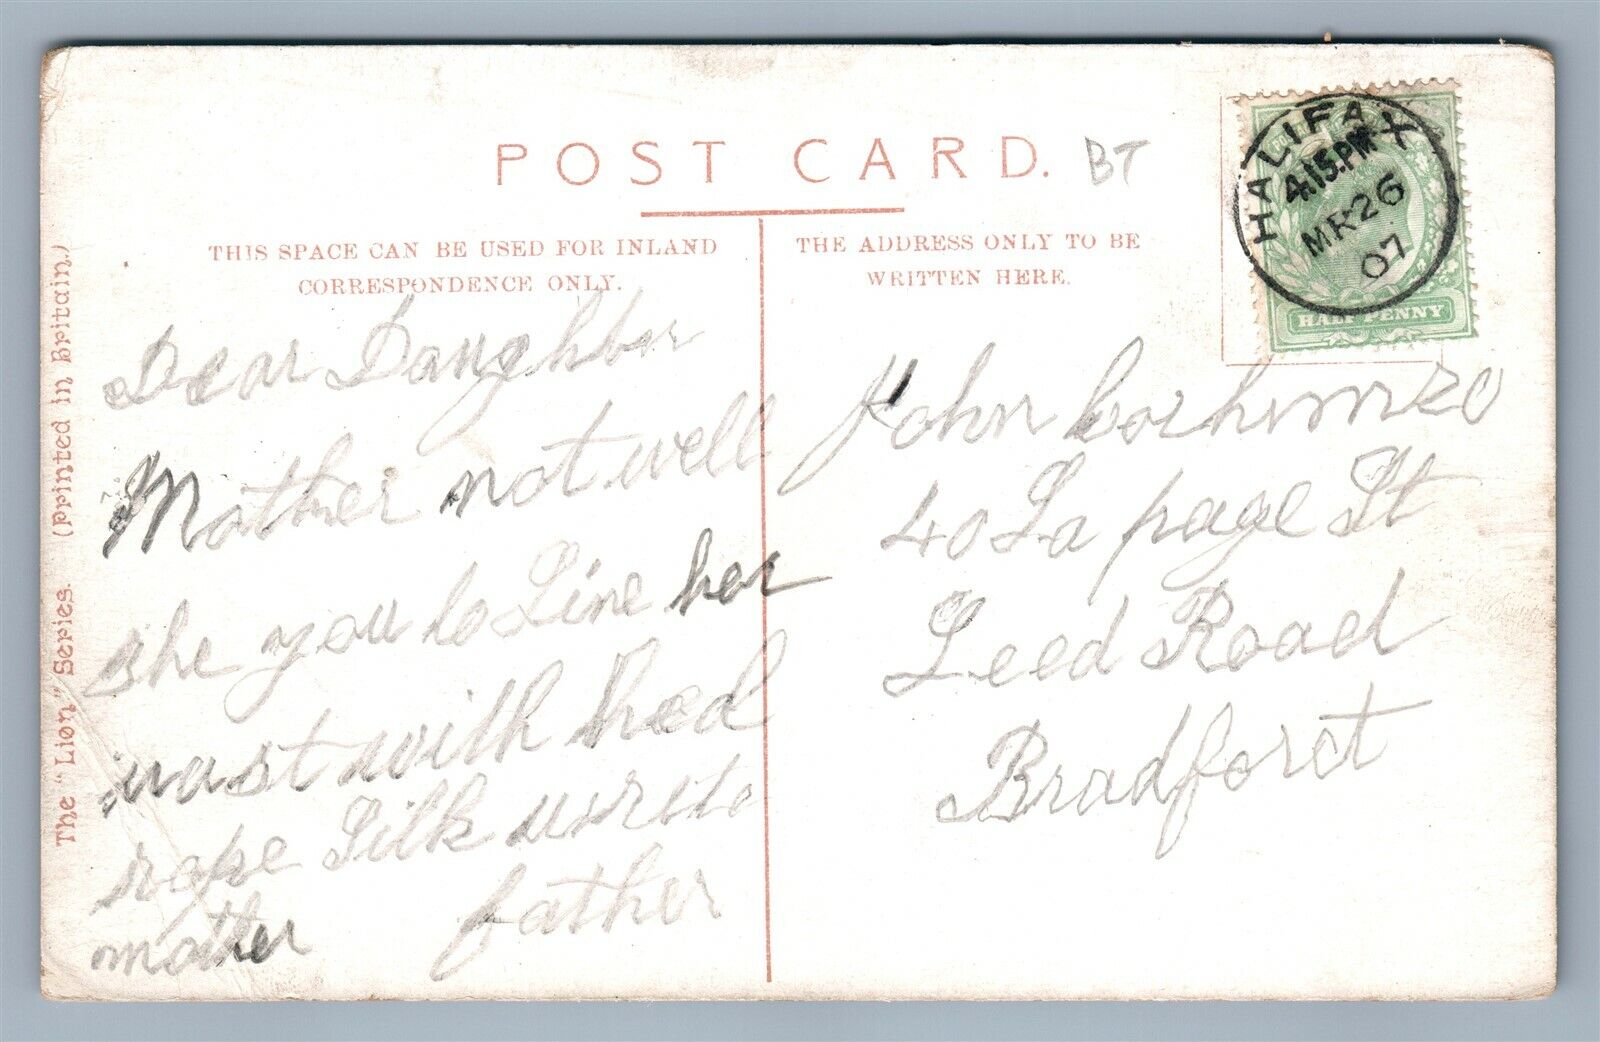 POST CARD. BT
THIS SPACE CAN BE USED FOR INLAND
CORRESPONDENCE ONLY.
THE ADDRESS ONLY TO BE
WRITTEN HERE.
HALIFAX
4.15.PM
MR 26
07
HALF PENNY
The "Lion" Series. (Printed in Britain.)
Dear Daughter
Mother not well
she you to Line her
wast with
rope Silk write
mother father
John
40 La page St
Leed Road
Bradford